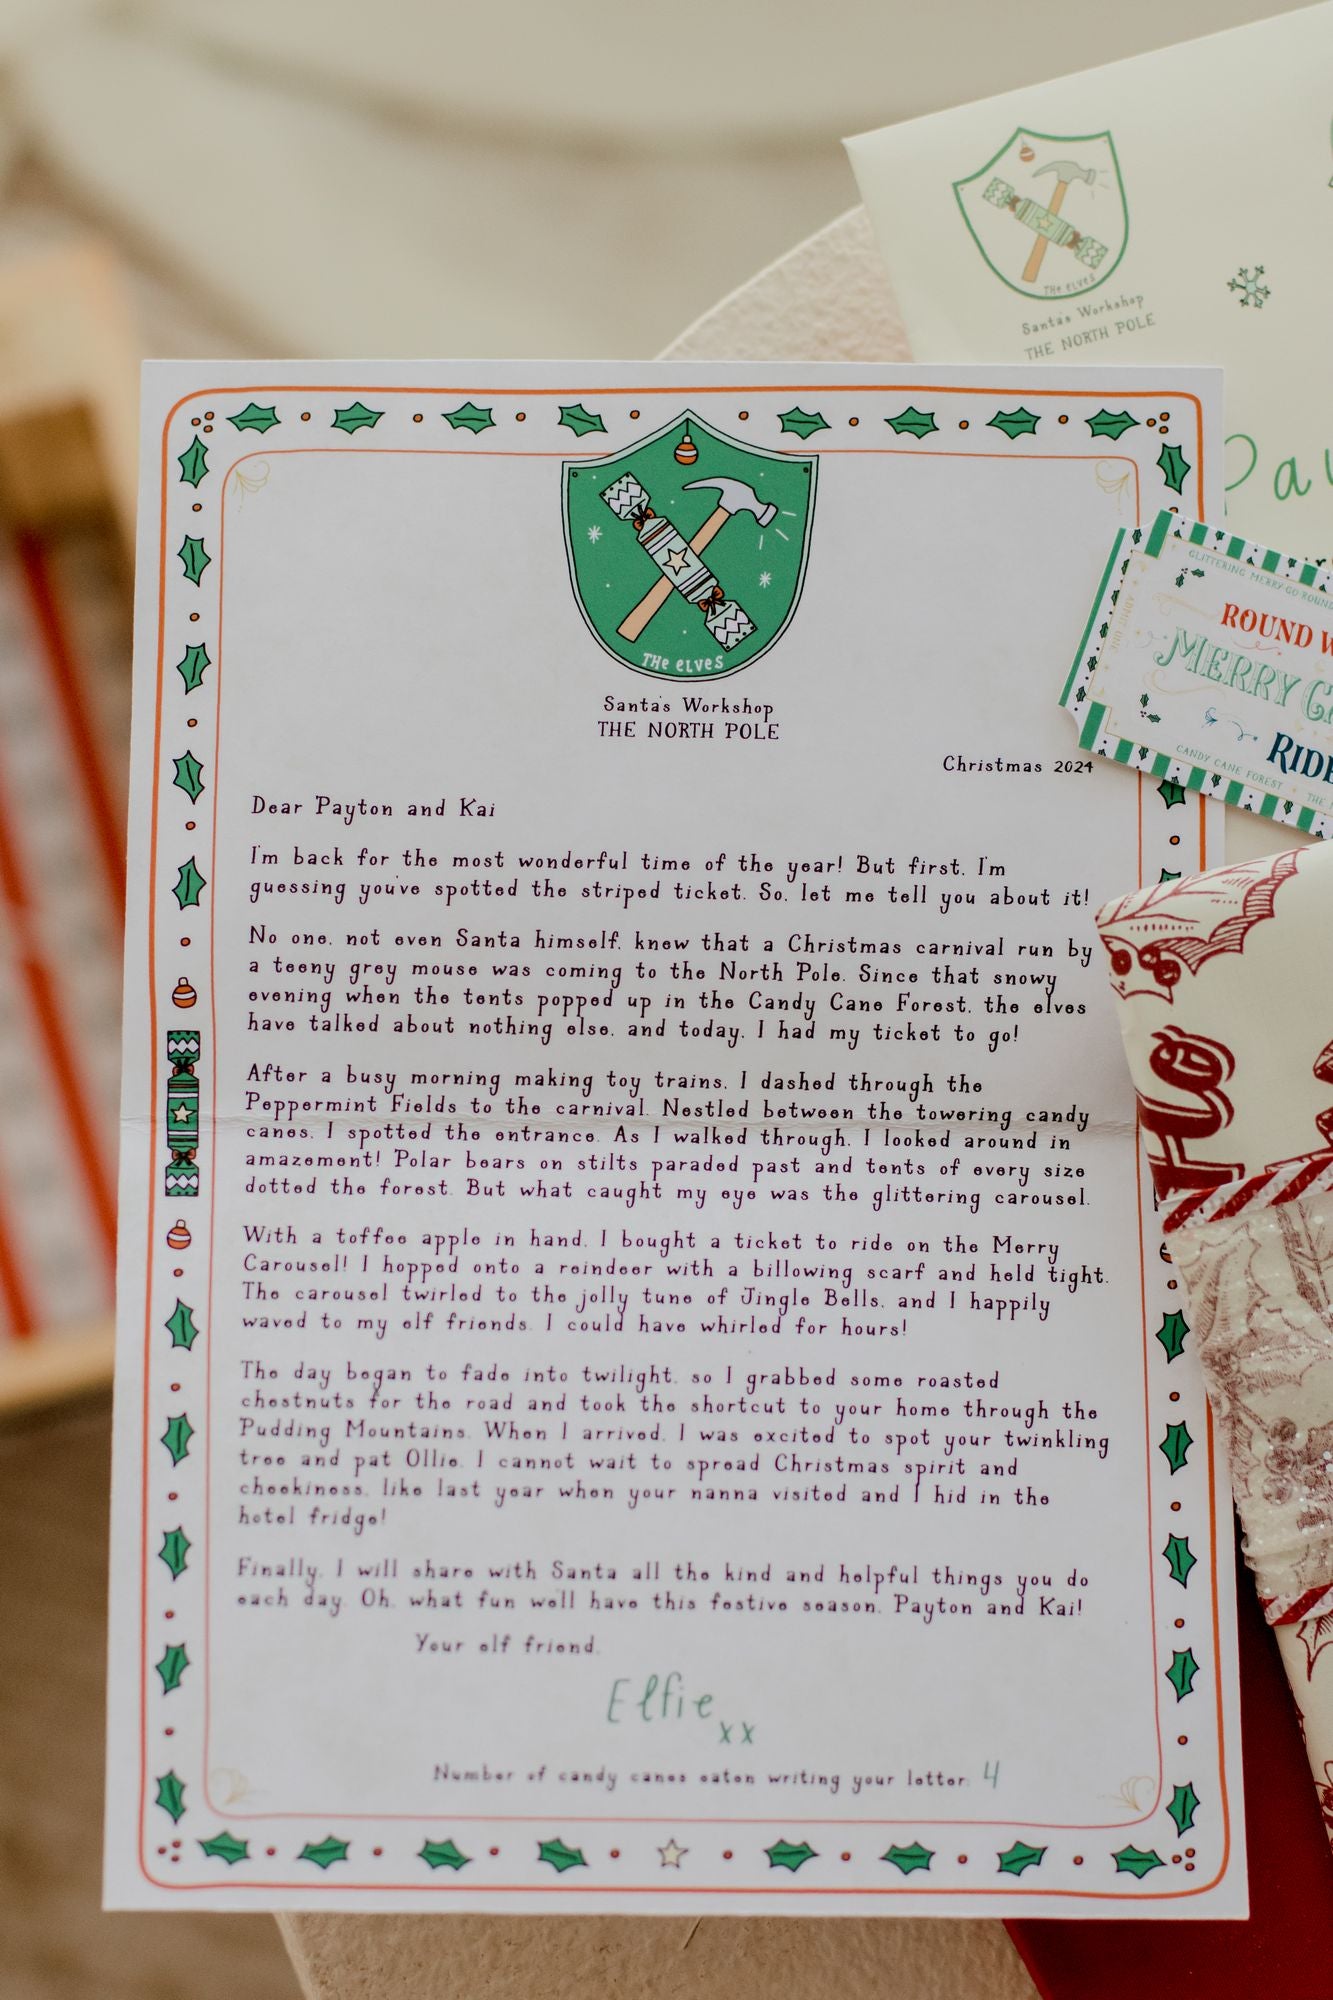 THE ELVES
Santa's Workshop
THE NORTH POLE
Pay
GLITTERING MERRY-GO-ROUND
ADMIT ONE
ROUND
MERRY
RIDE
CANDY CANE FOREST
THE ELVES
Santa's Workshop
THE NORTH POLE
Christmas 2024
Dear Payton and Kai
I'm back for the most wonderful time of the year! But first, I'm
guessing you've spotted the striped ticket. So, let me tell you about it!
No one, not even Santa himself, knew that a Christmas carnival run by
a teeny grey mouse was coming to the North Pole. Since that snowy
evening when the tents popped up in the Candy Cane Forest, the elves
have talked about nothing else, and today, I had my ticket to go!
After a busy morning making toy trains, I dashed through the
Peppermint Fields to the carnival. Nestled between the towering candy
canes, I spotted the entrance. As I walked through, I looked around in
amazement! Polar bears on stilts paraded past and tents of every size
dotted the forest. But what caught my eye was the glittering carousel.
With a toffee apple in hand, I bought a ticket to ride on the Merry
Carousel! I hopped onto a reindeer with a billowing scarf and held tight.
The carousel twirled to the jolly tune of Jingle Bells, and I happily
waved to my elf friends. I could have whirled for hours!
The day began to fade into twilight, so I grabbed some roasted
chestnuts for the road and took the shortcut to your home through the
Pudding Mountains. When I arrived, I was excited to spot your twinkling
tree and pat Ollie. I cannot wait to spread Christmas spirit and
cheekiness, like last year when your nanna visited and I hid in the
hotel fridge!
Finally, I will share with Santa all the kind and helpful things you do
each day. Oh, what fun we'll have this festive season, Payton and Kai!
Your elf friend,
Elfie xx
Number of candy canes eaten writing your letter: 4